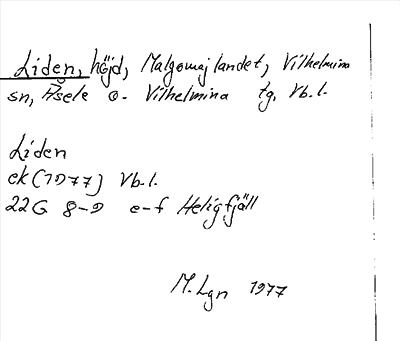 Liden, höjd, Malgomajlandet, Vilhelmina
sn, Åsele o. Vilhelmina tg, Vb.l.
Liden
ek (1977) Vb.l.
22G 8-9 e-f Heligfjäll
M. Lgn 1977